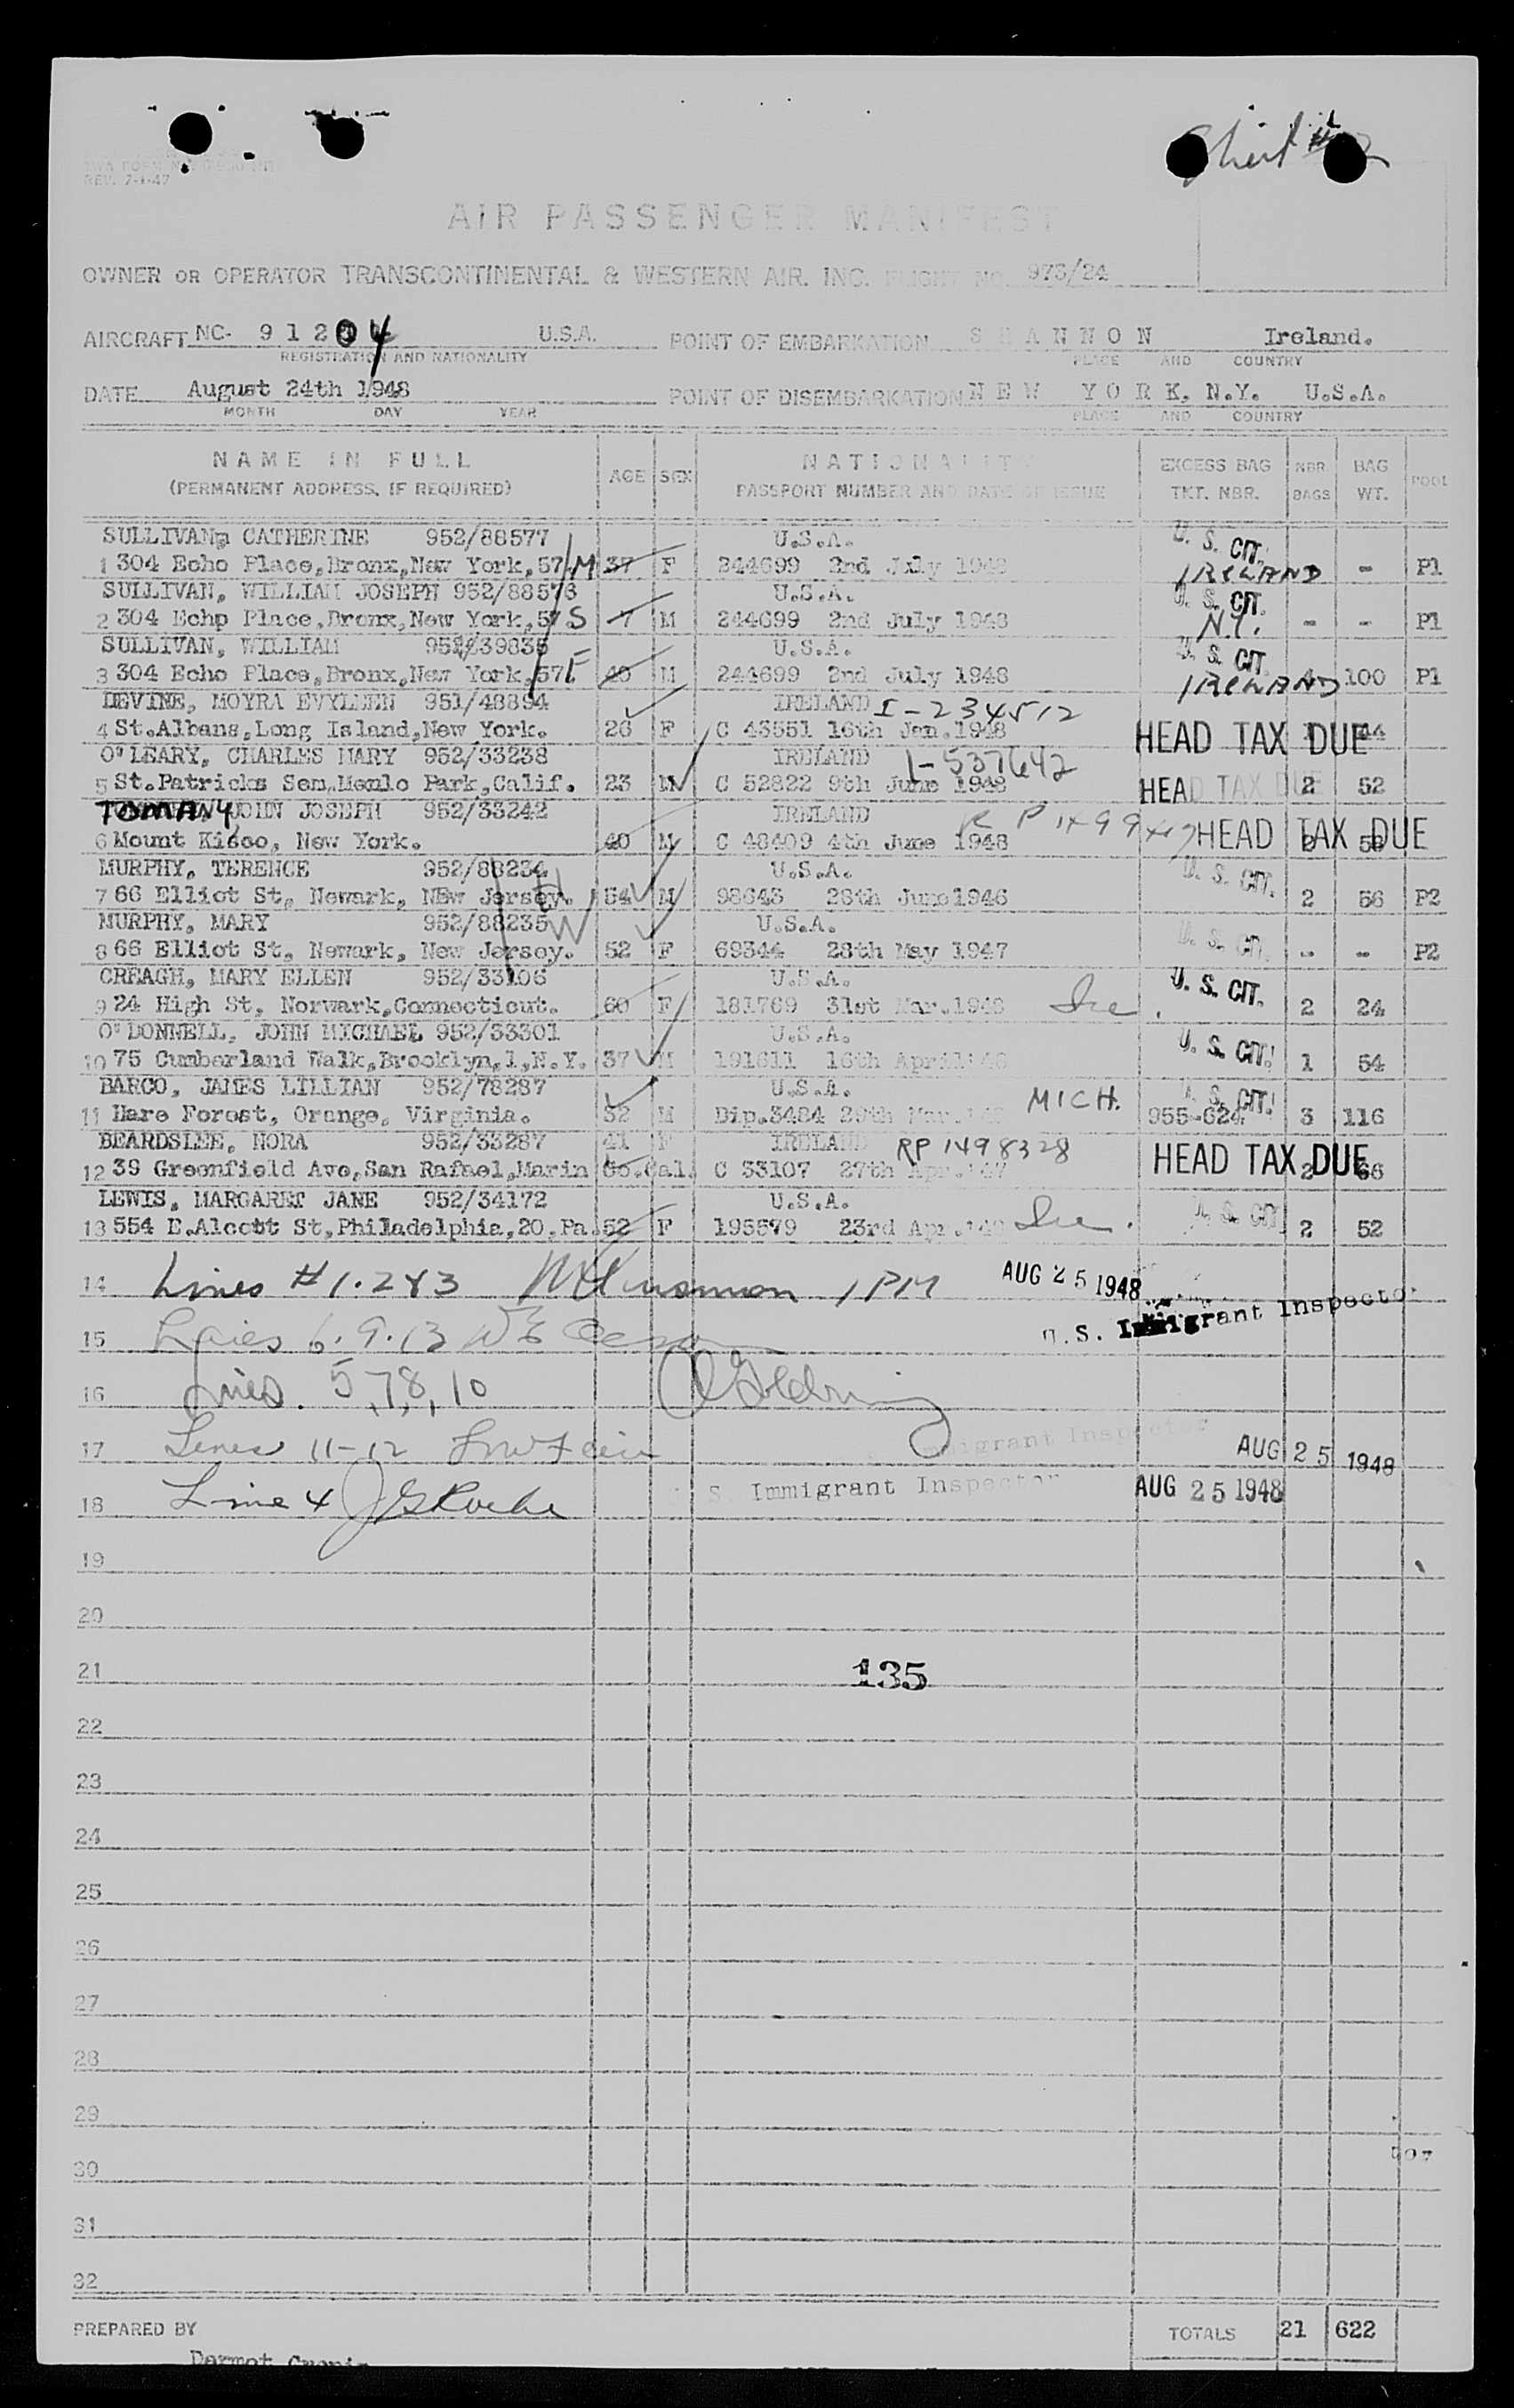 Sheet #2
REV. 7-1-47
AIR PASSENGER MANIFEST
OWNER OR OPERATOR TRANSCONTINENTAL & WESTERN AIR. INC. FLIGHT NO. 973/24
AIRCRAFT NC- 9 1 2 0 4 U.S.A. POINT OF EMBARKATION S H A N N O N Ireland.
REGISTRATION AND NATIONALITY PLACE AND COUNTRY
DATE August 24th 1948 POINT OF DISEMBARKATION N E W Y O R K, N.Y. U.S.A.
MONTH DAY YEAR PLACE AND COUNTRY
NAME IN FULL AGE SEX NATIONALITY EXCESS BAG NBR. BAG POOL
(PERMANENT ADDRESS, IF REQUIRED) PASSPORT NUMBER AND DATE OF ISSUE TKT. NBR. BAGS WT.
SULLIVAN, CATHERINE 952/88577 U.S.A. U. S. CIT.
1 304 Echo Place,Bronx,New York,57 M 37 F 244699 2nd July 1948 IRELAND - P1
SULLIVAN, WILLIAM JOSEPH 952/88576 U.S.A. U. S. CIT.
2 304 Echp Place,Bronx,New York,57 S 7 M 244699 2nd July 1948 N.Y. - - P1
SULLIVAN, WILLIAM 952/39835 U.S.A. U. S. CIT.
3 304 Echo Place,Bronx,New York,57 F 40 M 244699 2nd July 1948 IRELAND 4 100 P1
DEVINE, MOYRA EVYLEEN 951/48894 IRELAND I-234512
4 St.Albans,Long Island,New York. 26 F C 43551 16th Jan.1948 HEAD TAX DUE 44
O'LEARY, CHARLES MARY 952/33238 IRELAND I-537642
5 St.Patricks Sem.Menlo Park,Calif. 23 M C 52822 9th June 1948 HEAD TAX DUE 2 52
TOMANY JOHN JOSEPH 952/33242 IRELAND
6 Mount Kisco, New York. 40 M C 48409 4th June 1948 HEAD TAX DUE
MURPHY, TERENCE 952/88234 U.S.A. U. S. CIT.
7 66 Elliot St, Newark, NEw Jersey. H 54 M 98643 28th June1946 2 56 P2
MURPHY, MARY 952/88235 W U.S.A. U. S. CIT.
8 66 Elliot St, Newark, New Jersey. 52 F 69344 28th May 1947 - - P2
CREAGH, MARY ELLEN 952/33106 U.S.A. U. S. CIT.
9 24 High St, Norwark,Connecticut. 60 F 181769 31st Mar.1948 Ire. 2 24
O'DONNELL, JOHN MICHAEL 952/33301 U.S.A. U. S. CIT.
10 75 Cumberland Walk,Brooklyn,1,N.Y. 37 M 191611 16th April'48 1 54
BARCO, JAMES LILLIAN 952/78287 U.S.A. MICH. U. S. CIT.
11 Hare Forest, Orange, Virginia. 32 M Dip.3484 29th Mar.'48 955-624 3 116
BEARDSLEE, NORA 952/33287 41 F IRELAND RP 1498328
12 39 Greenfield Ave,San Rafael,Marin Co.Cal. C 33107 27th Apr.'47 HEAD TAX DUE 2 66
LEWIS, MARGARET JANE 952/34172 U.S.A. U. S. CIT
13 554 E.Alcott St,Philadelphia,20,Pa. 52 F 195579 23rd Apr.'48 Ire. 2 52
14 Lines #1.2&3 1PM AUG 25 1948
U.S. Immigrant Inspector
15 Lines 6.9.13
16 Lines. 5,7,8,10
17 Lines 11-12 Immigrant Inspector AUG 25 1948
18 Line 4 J G Roche U. S. Immigrant Inspector AUG 25 1948
19
20
21 135
22
23
24
25
26
27
28
29
30
31
32
PREPARED BY TOTALS 21 622